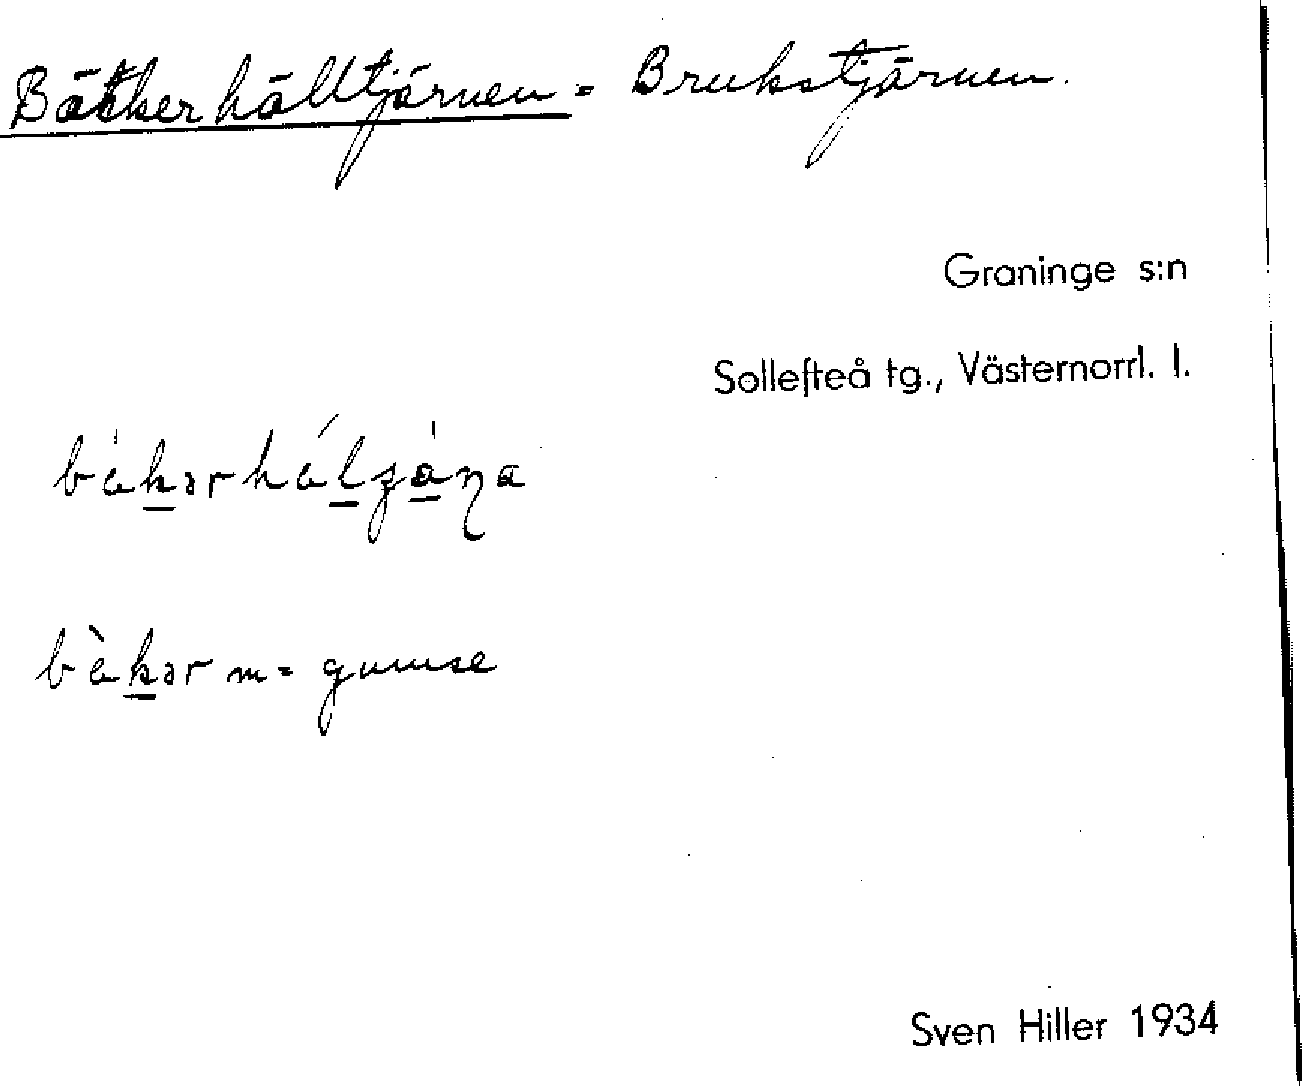 Bäckerhälltjärnen = Brukstjärnen.
Graninge s:n
Sollefteå tg., Västernorrl. l.
bàkərhálzàṇa
bàkər m = gumse
Sven Hiller 1934